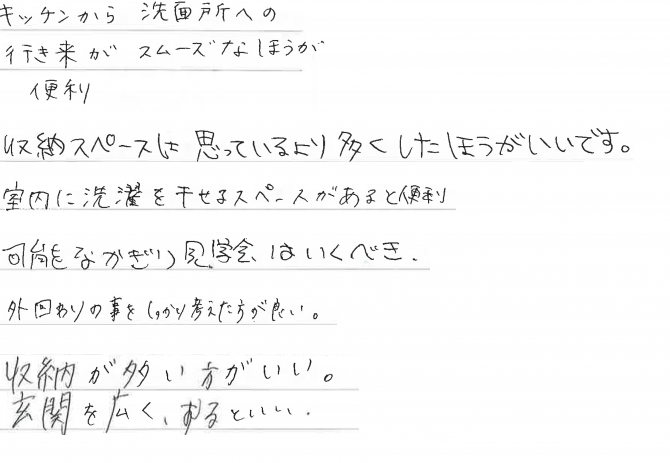 キッチンから 洗面所への
行き来が スムーズなほうが
便利
収納スペースは 思っているより 多くしたほうがいいです。
室内に洗濯を干せるスペースがあると便利
可能なかぎり見学会はいくべき.
外回りの事をしっかり考えた方が良い。
収納が多い方がいい。
玄関を広く、するといい.